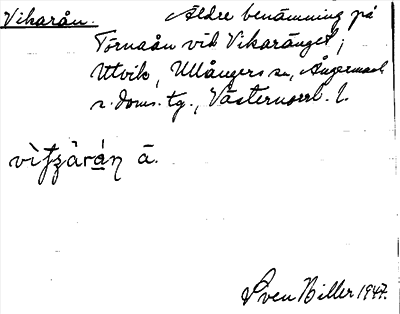 Vikarån. Äldre benämning på
Törnaån vid Vikaränget;
Utvik, Ullångers sn, Ångermanl
s. doms. tg., Västernorrl. l.
ā.
Sven Biller 1947.